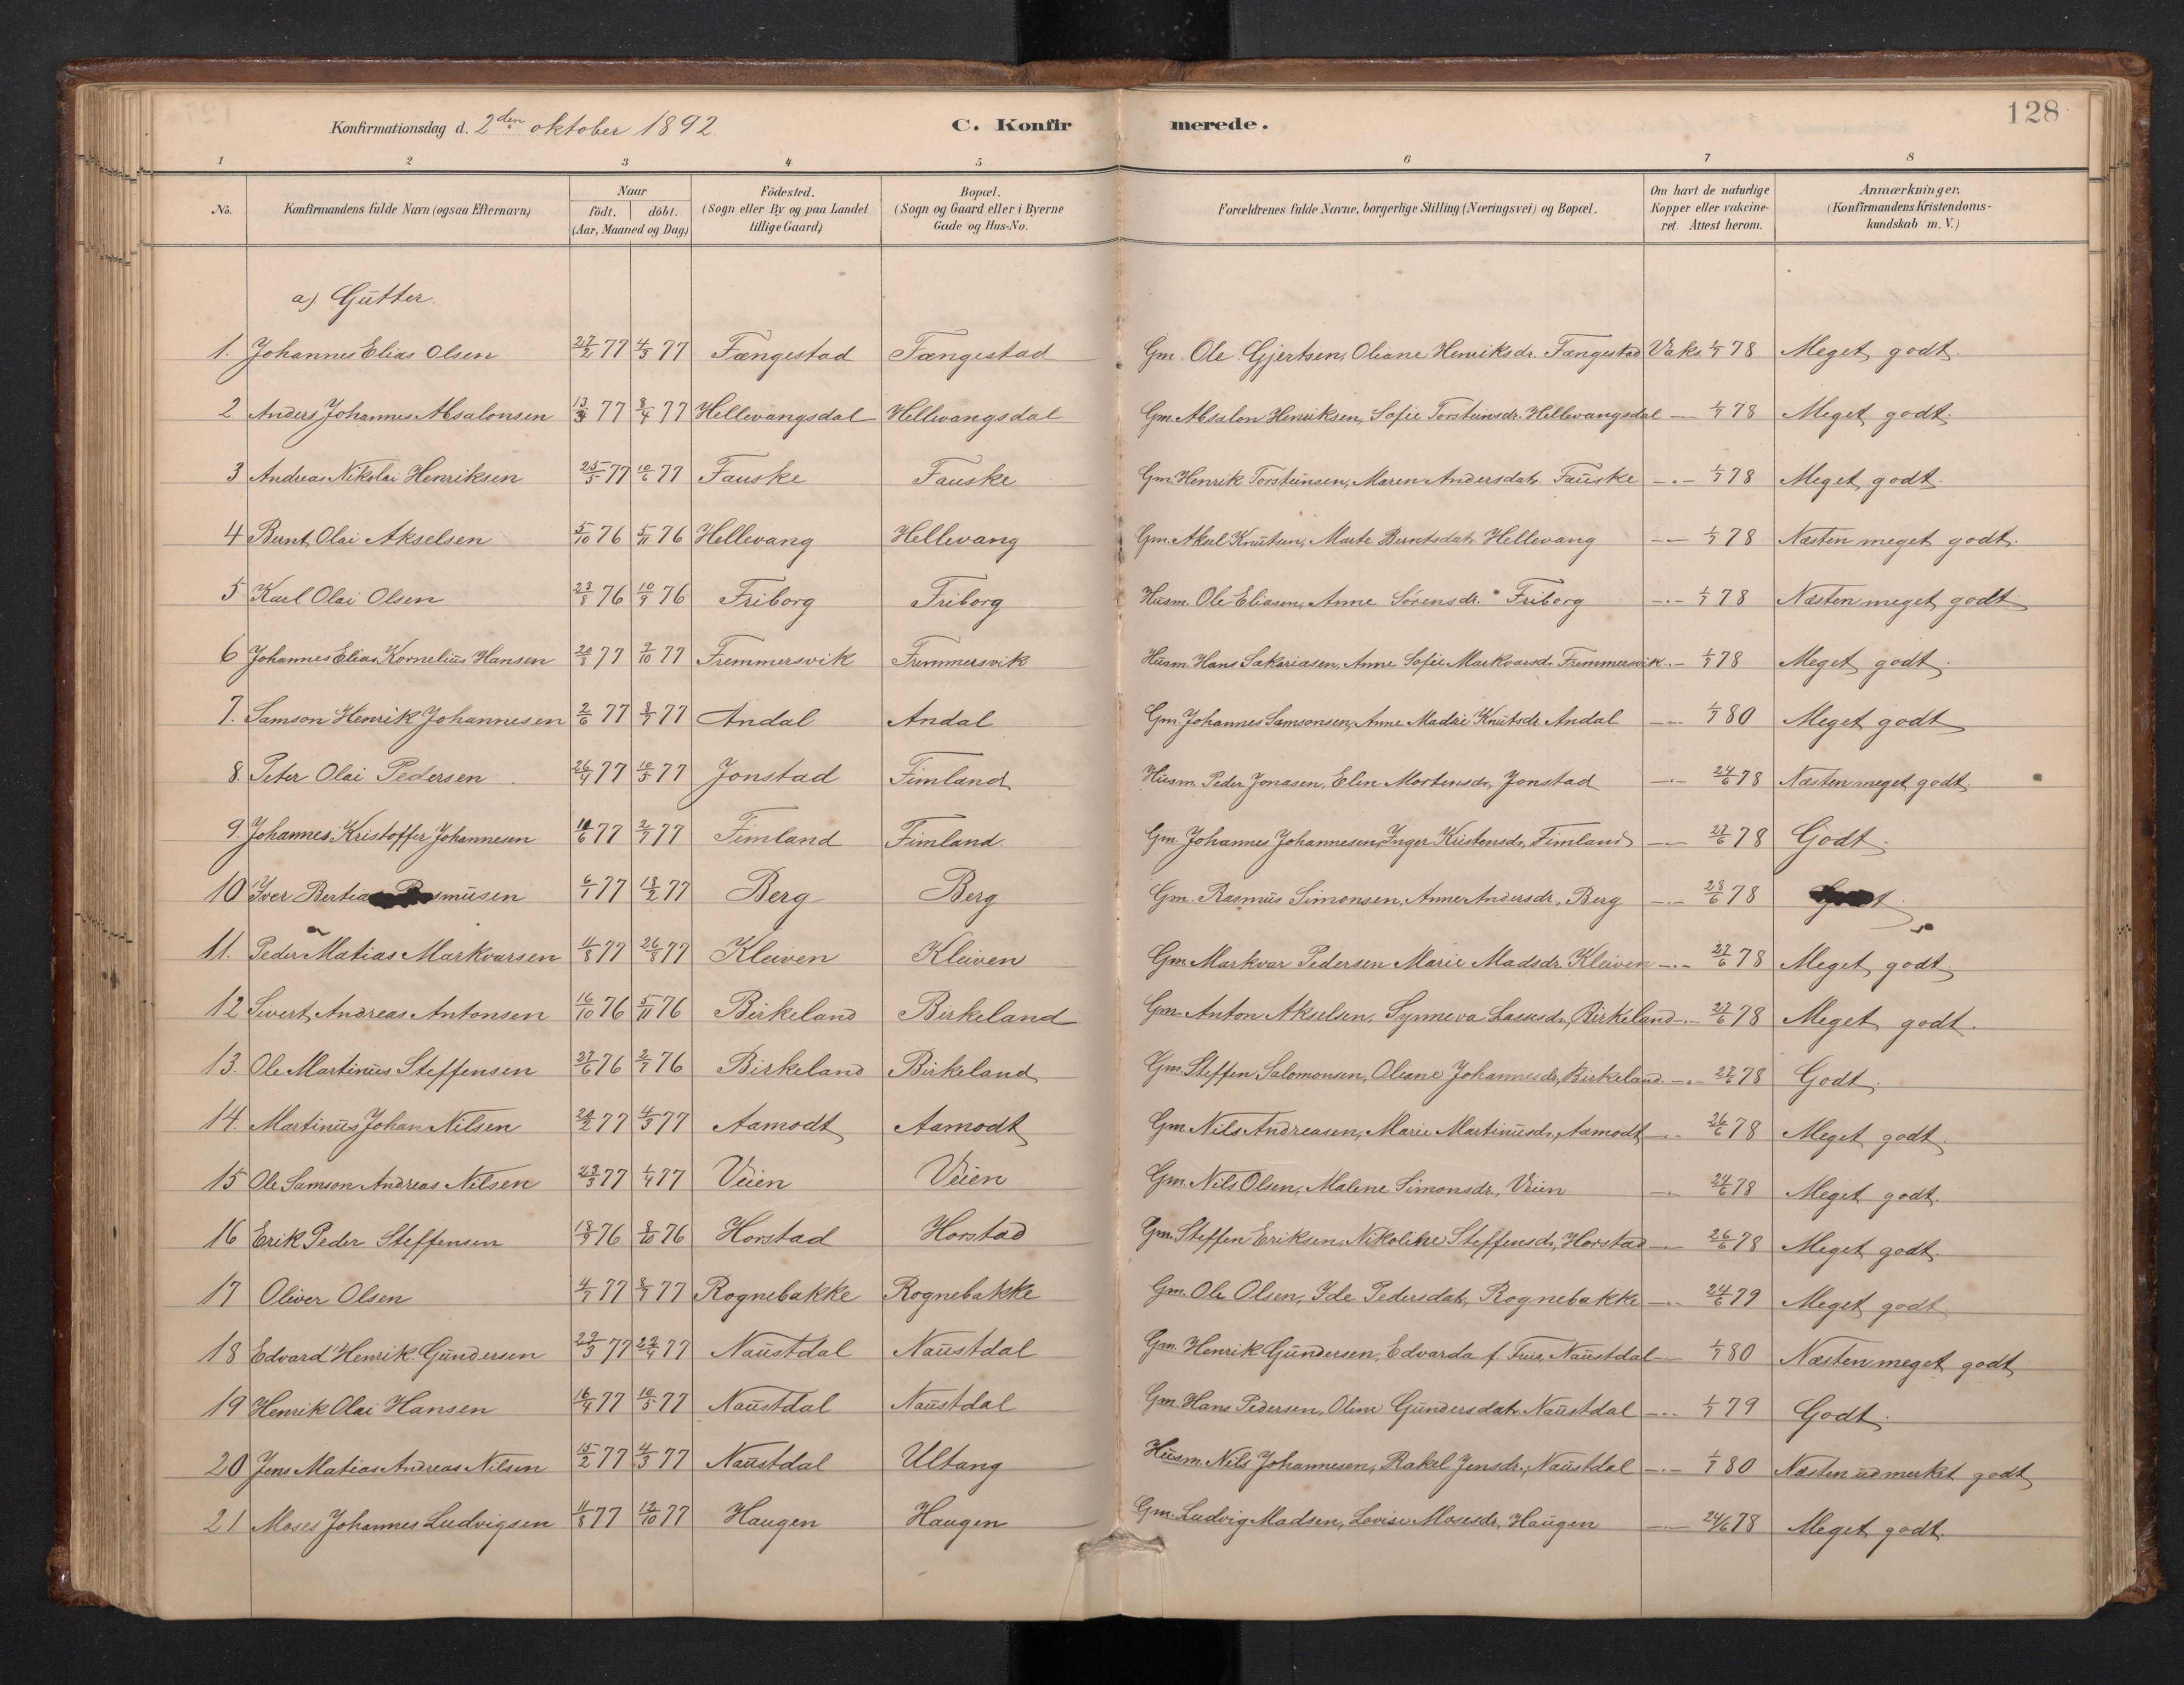 128
Konfirmationsdag d. 2den oktober 1892. C. Konfirmerede.
1 2 3 4 5 6 7 8
No. Konfirmandens fulde Navn (ogsaa Efternavn) Naar födt. döbt. (Aar, Maaned og Dag) Födested. (Sogn eller By og paa Landet tillige Gaard) Bopæl. (Sogn og Gaard eller i Byerne Gade og Hus-No. Forældrenes fulde Navne, borgerlige Stilling (Næringsvei) og Bopæl. Om havt de naturlige Kopper eller vakcineret. Attest herom. Anmærkninger. (Konfirmandens Kristendomskundskab m. V.)
a) Gutter.
1. Johannes Elias Olsen 27/2 77 4/3 77 Fængestad Fængestad Gm. Ole Gjertsen, Oliane Henriksdr. Fængestad Vaks. 1/7 78 Meget godt.
2 Anders Johannes Absalonsen 13/3 77 8/4 77 Hellevangsdal Hellevangsdal Gm. Absalon Henriksen, Sofie Torsteinsdr. Hellevangsdal -"- 1/7 78 Meget godt.
3 Andreas Nikolai Henriksen 25/5 77 10/6 77 Fauske Fauske Gm. Henrik Torsteinsen, Maren Andersdatr. Fauske -"- 1/7 78 Meget godt.
4 Bernt Olai Akselsen 5/10 76 5/11 76 Hellevang Hellevang Gm. Aksel Knutsen, Marte Berntsdatr. Hellevang -"- 1/7 78 Næsten meget godt.
5 Karl Olai Olsen 23/8 76 10/9 76 Friborg Friborg Husm. Ole Eliasen, Anne Sørensdr. Friborg -"- 1/7 78 Næsten meget godt
6 Johannes Elias Kornelius Hansen 20/8 77 7/10 77 Fremmersvik Fremmersvik Husm. Hans Sakariasen, Anne Sofie Markvarsd. Fremmersvik -"- 1/7 78 Meget godt.
7. Samson Henrik Johannesen 2/6 77 8/7 77 Andal Andal Gm. Johannes Samsonsen, Anne Madie Knutsdr. Andal -"- 1/7 80 Meget godt
8. Peter Olai Pedersen 26/4 77 10/5 77 Jonstad Fimland Husm. Peder Jonasen, Elen Mortensdr, Jonstad -"- 24/6 78 Næsten meget godt.
9. Johannes Kristoffer Johannesen 77 2/7 77 Fimland Fimland. Gm. Johannes Johannesen, Inger Kristensdr, Fimland -"- 27/6 78 Godt.
10 Iver smusen 6/1 77 18/2 77 Berg Berg Gm. Rasmus Simonsen, Anne Andersdr, Berg -"- 28/6 78
11. Peder Matias Markvarsen 11/8 77 26/8 77 Kleiven Kleiven Gm. Markvar Pedersen Marie Madsdr. Kleiven -"- 27/6 78 Meget godt
12 Sivert Andreas Antonsen 16/10 76 5/11 76 Birkeland Birkeland Gm. Anton Akselsen, Synneva Lassesdr, Birkeland -"- 27/6 78 Meget godt.
13. Ole Martinus Steffensen 27/6 76 2/7 76 Birkeland Birkeland Gm. Steffen Salomonsen, Oliane Johannesdr, Birkeland -"- 27/6 78 Godt.
14. Martinus Johan Nilsen 20/2 77 4/3 77 Aamodt Aamodt Gm. Nils Andreasen, Marie Martinusdr, Aamodt -"- 26/6 78 Meget godt.
15 Ole Samson Andreas Nilsen 23/3 77 1/4 77 Veien Veien Gm. Nils Olsen, Malene Simonsdr, Veien -"- 24/6 78 Meget godt.
16 Erik Peder Steffensen 18/9 76 8/10 76 Horstad Horstad Gm. Steffen Eriksen, Nikoline Steffensdr, Horstad -"- 26/6 78 Meget godt.
17 Oliver Olsen 4/7 77 8/7 77 Rognebakke Rognebakke Gm. Ole Olsen, Ide Pedersdatr, Rognebakke -"- 24/6 79 Meget godt.
18 Edvard Henrik Gundersen 29/3 77 22/4 77 Naustdal Naustdal Gm. Henrik Gundersen, Edvarda f. Friis Naustdal -"- 1/7 80 Næsten meget godt
19 Henrik Olai Hansen 16/4 77 10/5 77 Naustdal Naustdal Gm. Hans Pedersen, Oline Gundersdatr Naustdal -"- 1/7 79 Godt.
20 Jens Matias Andreas Nilsen 15/2 77 4/3 77 Naustdal Ullang Husm. Nils Johannesen, Rakel Jensdr, Naustdal -"- 1/7 80 Næsten udmerket godt
21 Moses Johannes Ludvigsen 11/8 77 12/10 77 Haugen Haugen Gm. Ludvig Madsen, Lovise Mosesdr, Haugen -"- 24/6 78 Meget godt.